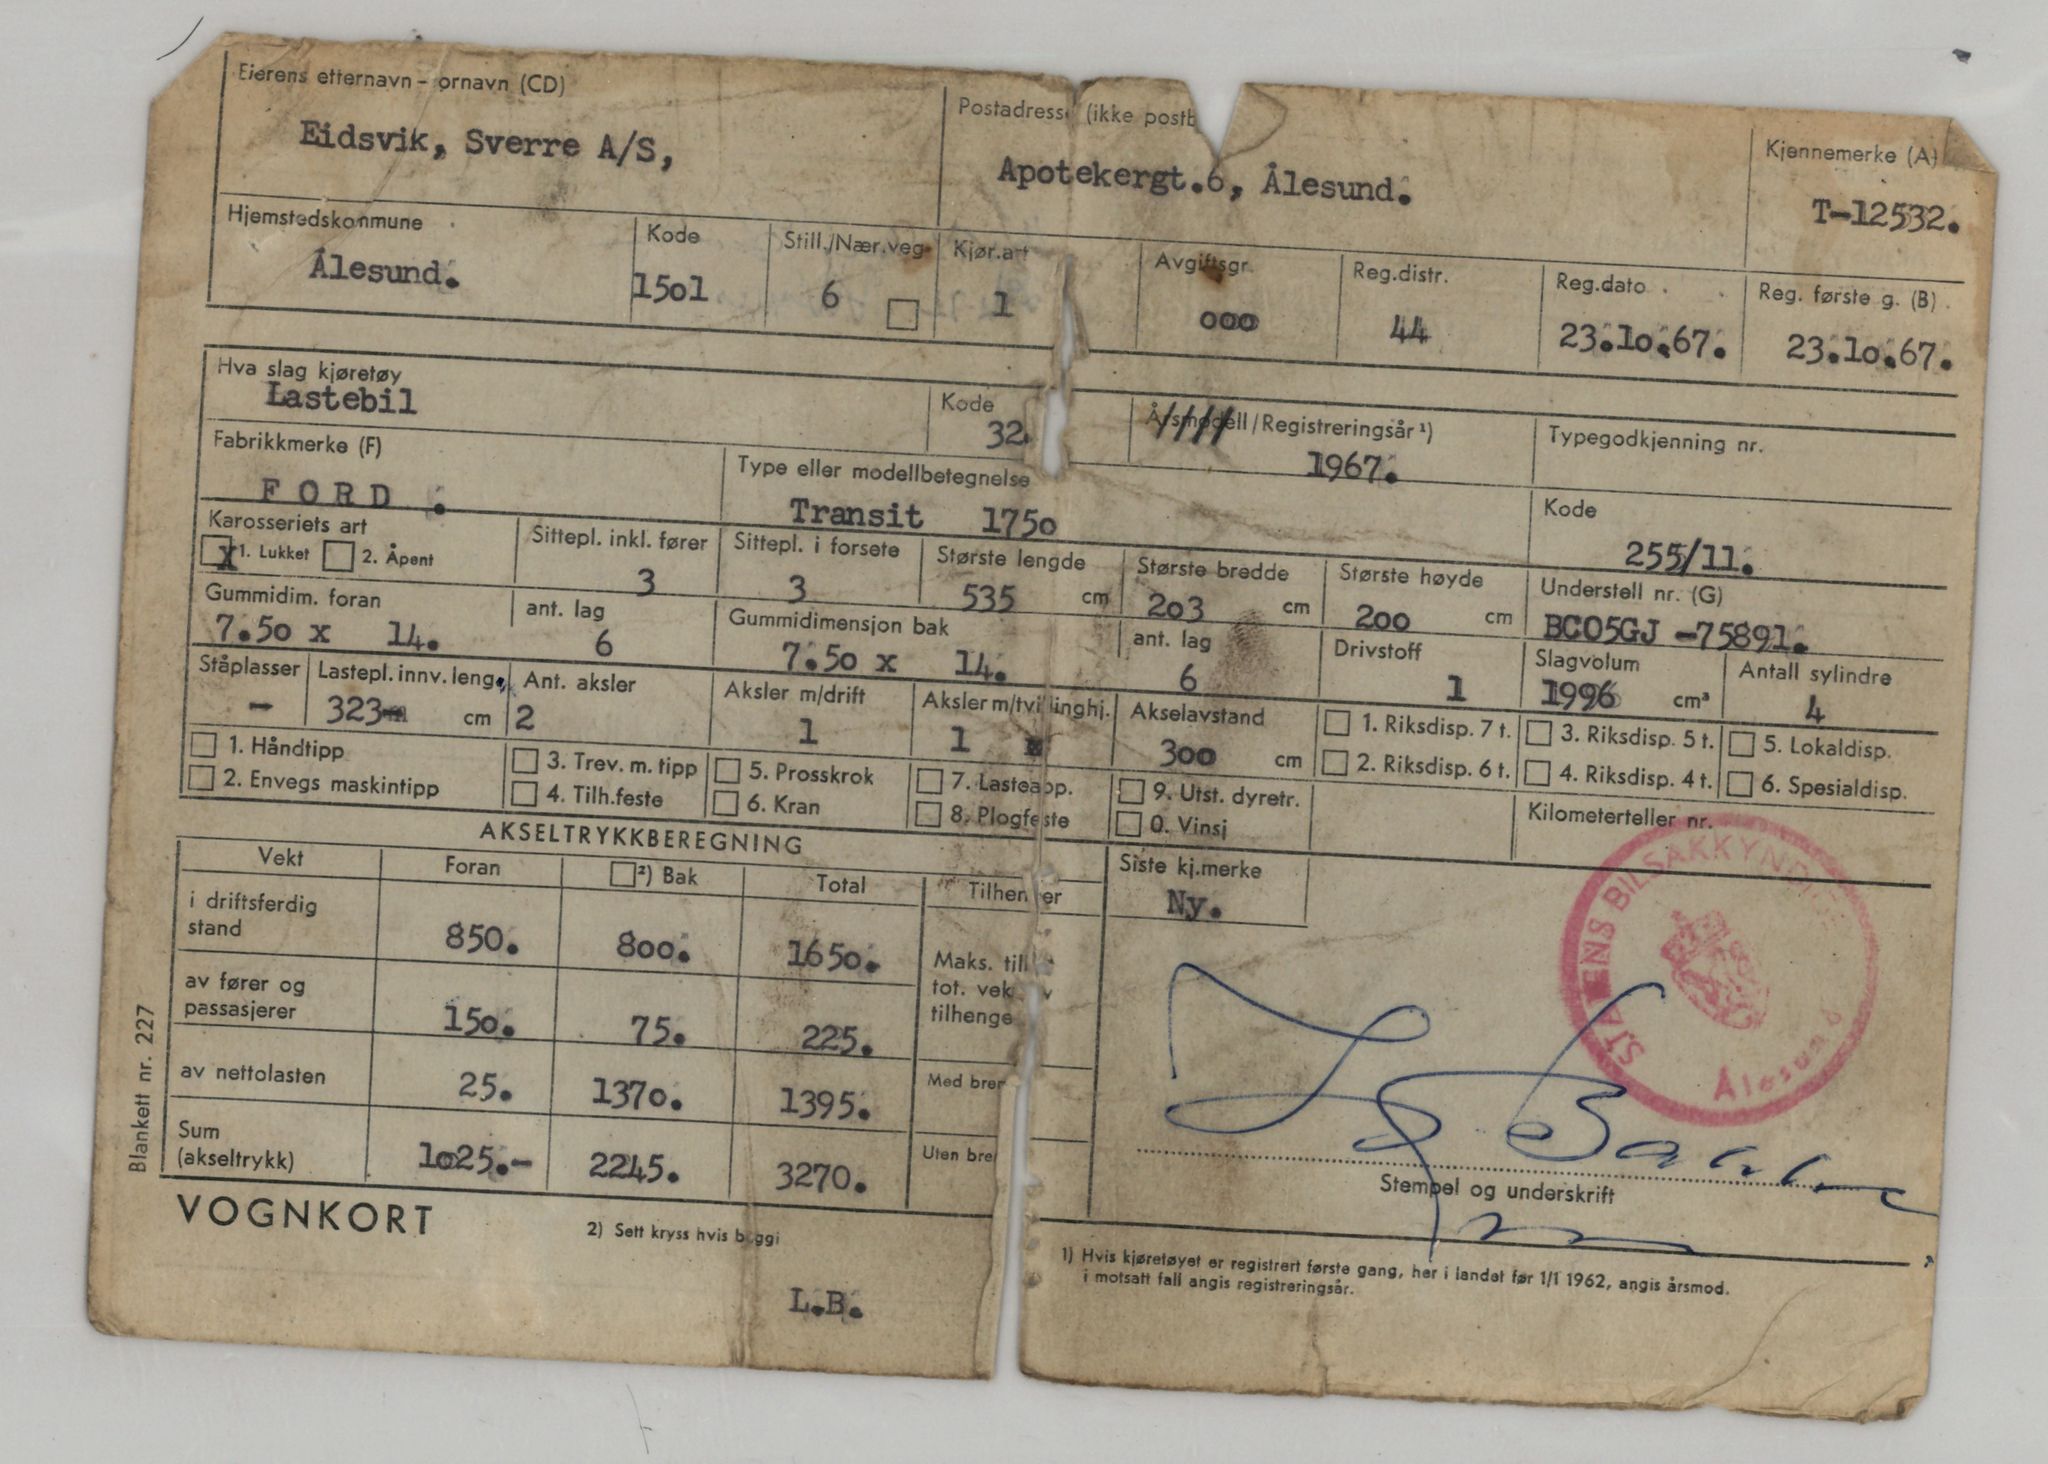 Eierens etternavn - ornavn (CD)
Eidsvik, Sverre A/S,
Postadresse (ikke postb
Apotekergt.6, Ålesund.
Kjennemerke (A)
T-12532.
Hjemstedskommune
Ålesund.
Kode
1501
Still./Nær.veg
6
Kjør.art
1
Avgiftsgr.
000
Reg.distr.
44
Reg.dato
23.10.67.
Reg. første g. (B)
23.10.67.
Hva slag kjøretøy
Lastebil
Kode
32.
Årsmodell/Registreringsår ¹)
1967.
Typegodkjenning nr.
Fabrikkmerke (F)
FORD .
Type eller modellbetegnelse
Transit 1750
Kode
255/11.
Karosseriets art
X 1. Lukket 2. Åpent
Sittepl. inkl. fører
3
Sittepl. i forsete
3
Største lengde
535 cm
Største bredde
203 cm
Største høyde
200 cm
Understell nr. (G)
BC05GJ -75891.
Gummidim. foran
7.50 x 14.
ant. lag
6
Gummidimensjon bak
7.50 x 14.
ant. lag
6
Drivstoff
1
Slagvolum
1996 cm³
Antall sylindre
4
Ståplasser
-
Lastepl. innv. leng.
323 cm
Ant. aksler
2
Aksler m/drift
1
Aksler m/tvillinghj.
1
Akselavstand
300 cm
1. Riksdisp. 7 t.
2. Riksdisp. 6 t.
3. Riksdisp. 5 t.
4. Riksdisp. 4 t.
5. Lokaldisp.
6. Spesialdisp.
1. Håndtipp
2. Envegs maskintipp
3. Trev. m. tipp
4. Tilh.feste
5. Prosskrok
6. Kran
7. Lasteapp.
8. Plogfeste
9. Utst. dyretr.
0. Vinsj
Kilometerteller nr.
AKSELTRYKKBEREGNING
Vekt Foran ²) Bak Total Tilhenger
i driftsferdig
stand 850. 800. 1650.
av fører og
passasjerer 150. 75. 225.
av nettolasten 25. 1370. 1395.
Sum
(akseltrykk) 1025.- 2245. 3270.
Maks. till
tot. vek v
tilhenge
Med brem
Uten bre
Siste kj.merke
Ny.
STATENS BILSAKKYNDIGE
Ålesund
Stempel og underskrift
Blankett nr. 227
VOGNKORT
2) Sett kryss hvis boggi
L.B.
1) Hvis kjøretøyet er registrert første gang, her i landet før 1/1 1962, angis årsmod.
i motsatt fall angis registreringsår.